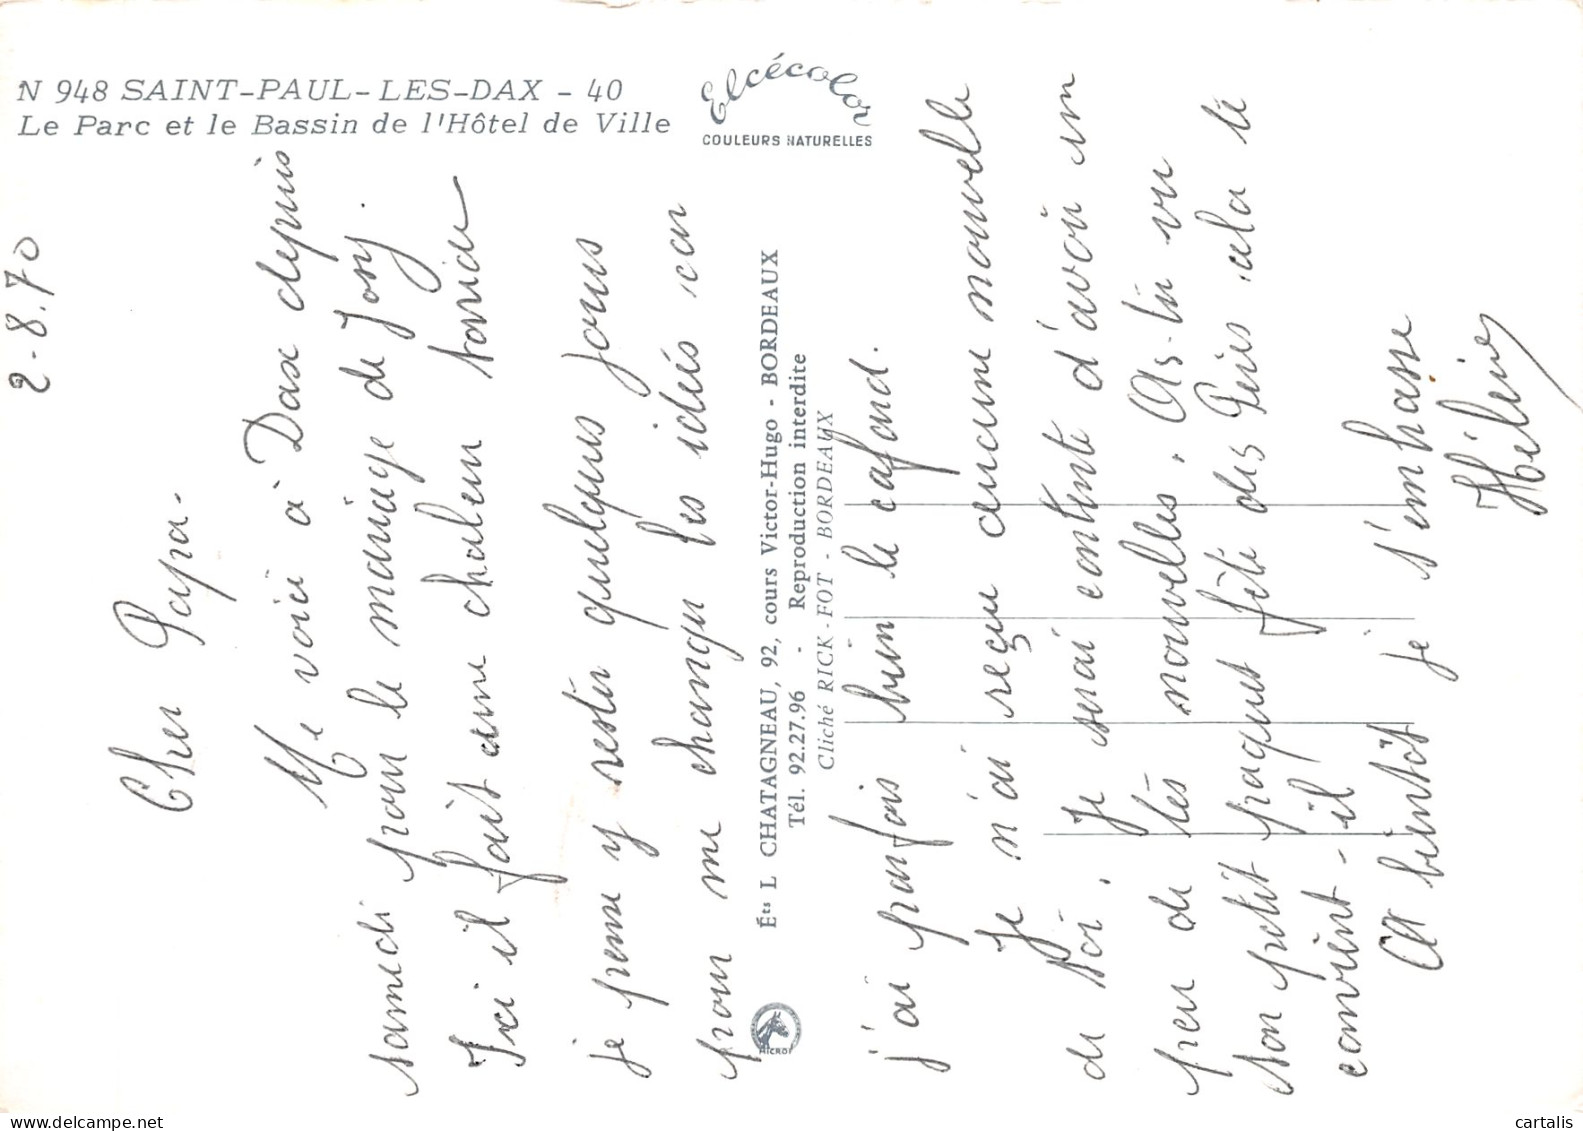 N 948 SAINT-PAUL-LES-DAX - 40
Le Parc et le Bassin de l'Hôtel de Ville
Elcécolor
COULEURS NATURELLES
2-8.70
Cher Papa-
Me voici à Dax depuis
samedi pour le mariage de Josy.
Ici il fait une chaleur torride
je pense y rester quelques jours
pour me changer les idées car
Éts L CHATAGNEAU, 92, cours Victor-Hugo - BORDEAUX
Tél. 92.27.96 - Reproduction interdite
Cliché RICK-FOT - BORDEAUX
MICRO
j'ai parfois bien le cafard.
Je n'ai reçu aucune nouvelle
de toi. Je serai contente d'avoir un
peu de tes nouvelles. As-tu vu
ton petit paquet fête des Pères cela te
convient-il
A bientôt je t'embrasse
Hélène
cartalis